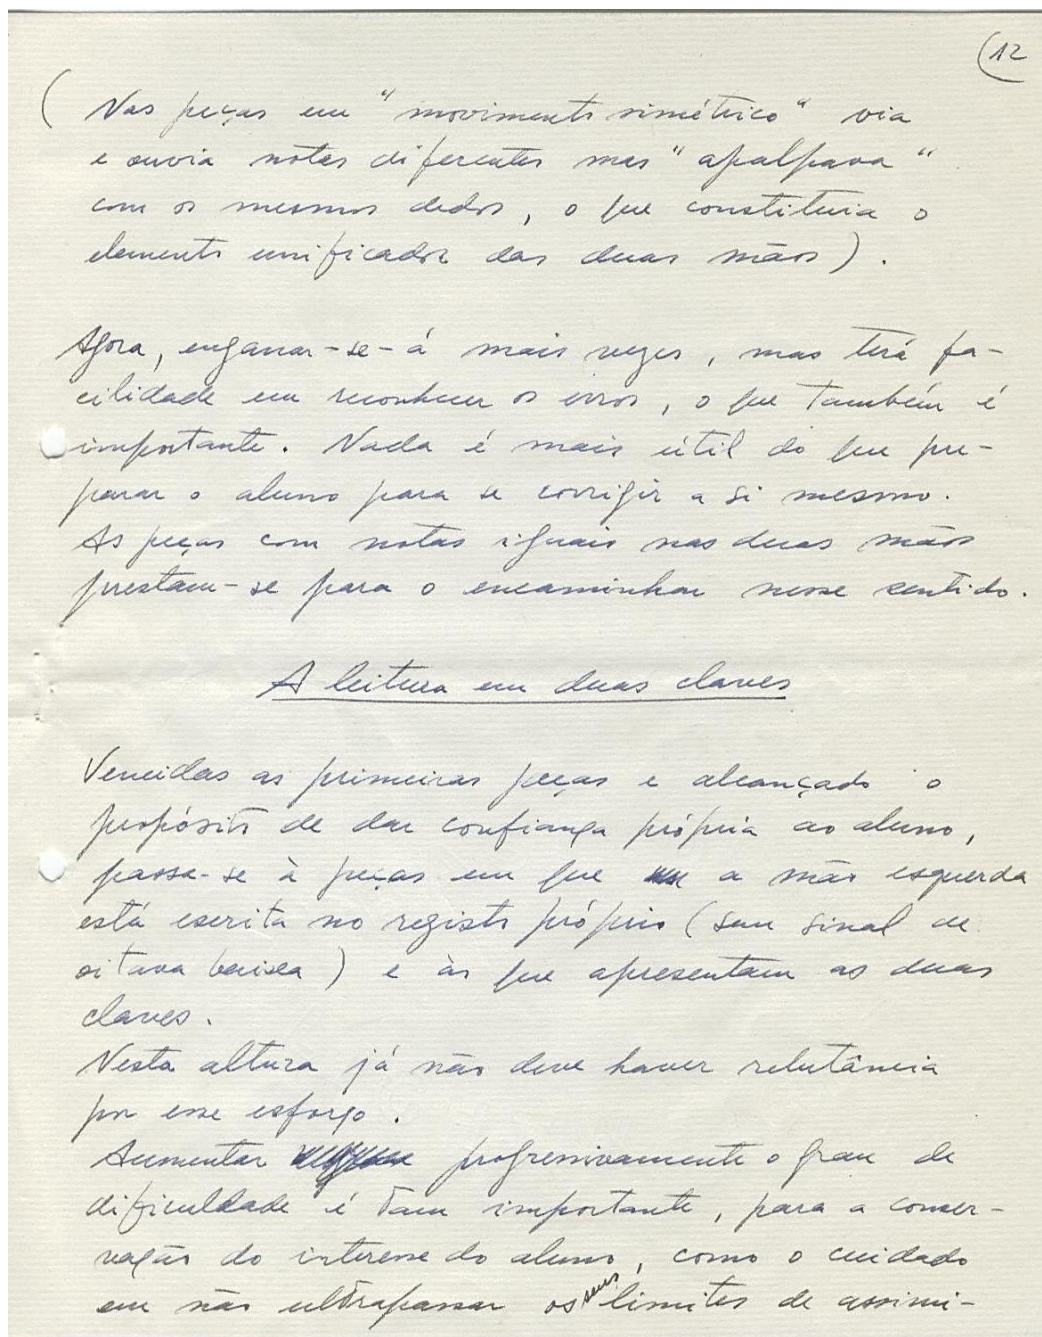 (12
( Nas peças em "movimento simétrico" via
e ouvia notas diferentes mas "apalpava"
com os mesmos dedos, o que constituia o
elemento unificador das duas mãos).
Agora, enganar-se-á mais vezes, mas terá fa-
cilidade em reconhecer os erros, o que também é
importante. Nada é mais útil do que pre-
parar o aluno para se corrigir a si mesmo.
As peças com notas iguais nas duas mãos
prestam-se para o encaminhar nesse sentido.
A leitura em duas claves
Vencidas as primeiras peças e alcançado o
propósito de dar confiança própria ao aluno,
passe-se à peças em que a mão esquerda
está escrita no registo próprio (sem sinal de
oitava baixa) e às que apresentam as duas
claves.
Nesta altura já não deve haver relutância
por esse esforço.
Aumentar progressivamente o grau de
dificuldade é tam importante, para a conser-
vação do interesse do aluno, como o cuidado
em não ultrapassar os seus limites de assimi-